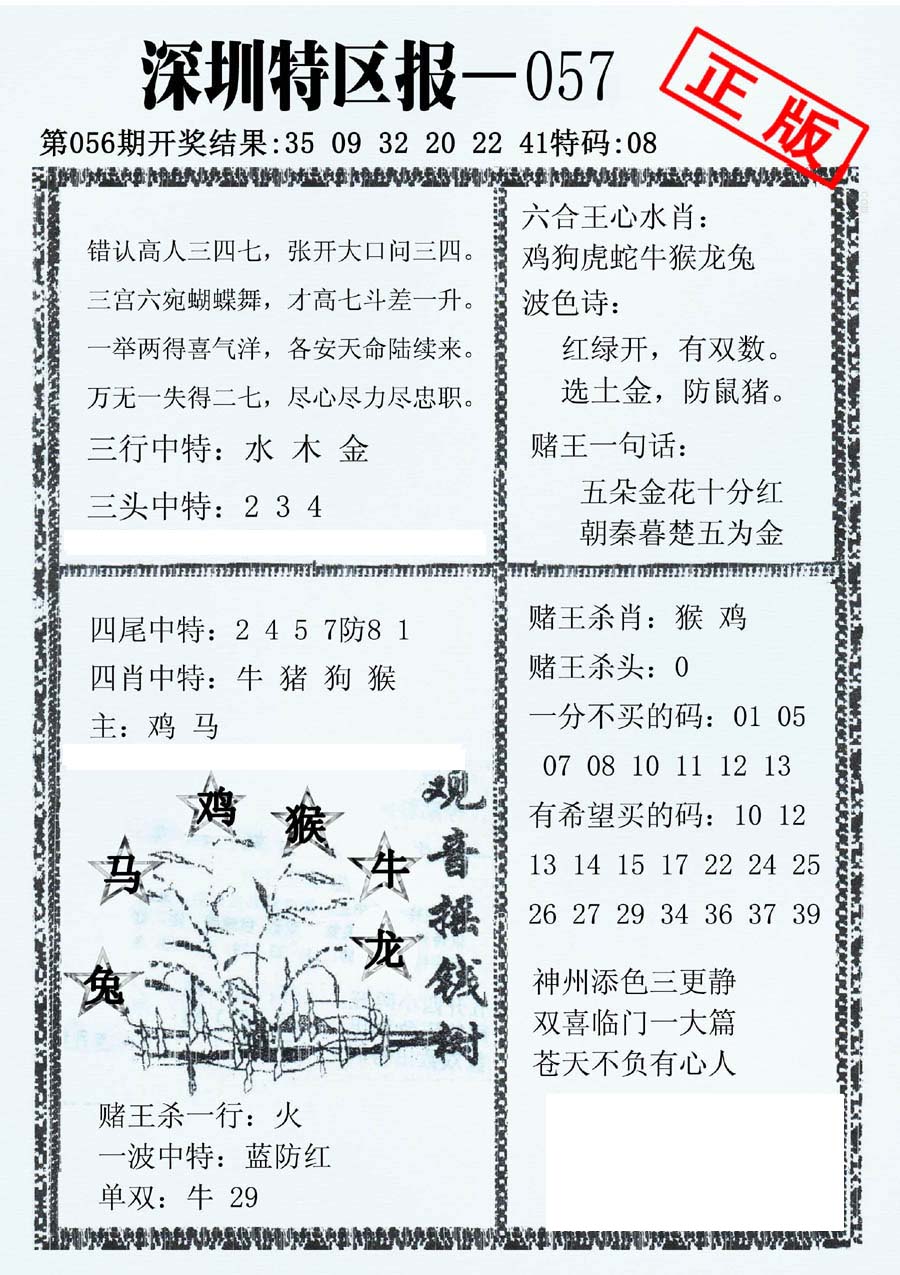 深圳特区报—057
正版
第056期开奖结果:35 09 32 20 22 41特码:08
错认高人三四七，张开大口问三四。
三宫六宛蝴蝶舞，才高七斗差一升。
一举两得喜气洋，各安天命陆续来。
万无一失得二七，尽心尽力尽忠职。
三行中特：水 木 金
三头中特：2 3 4
六合王心水肖：
鸡狗虎蛇牛猴龙兔
波色诗：
红绿开，有双数。
选土金，防鼠猪。
赌王一句话：
五朵金花十分红
朝秦暮楚五为金
四尾中特：2 4 5 7防8 1
四肖中特：牛 猪 狗 猴
主：鸡 马
鸡
猴
马
牛
龙
兔
观音摇钱树
赌王杀一行：火
一波中特：蓝防红
单双：牛 29
赌王杀肖：猴 鸡
赌王杀头：0
一分不买的码：01 05
07 08 10 11 12 13
有希望买的码：10 12
13 14 15 17 22 24 25
26 27 29 34 36 37 39
神州添色三更静
双喜临门一大篇
苍天不负有心人